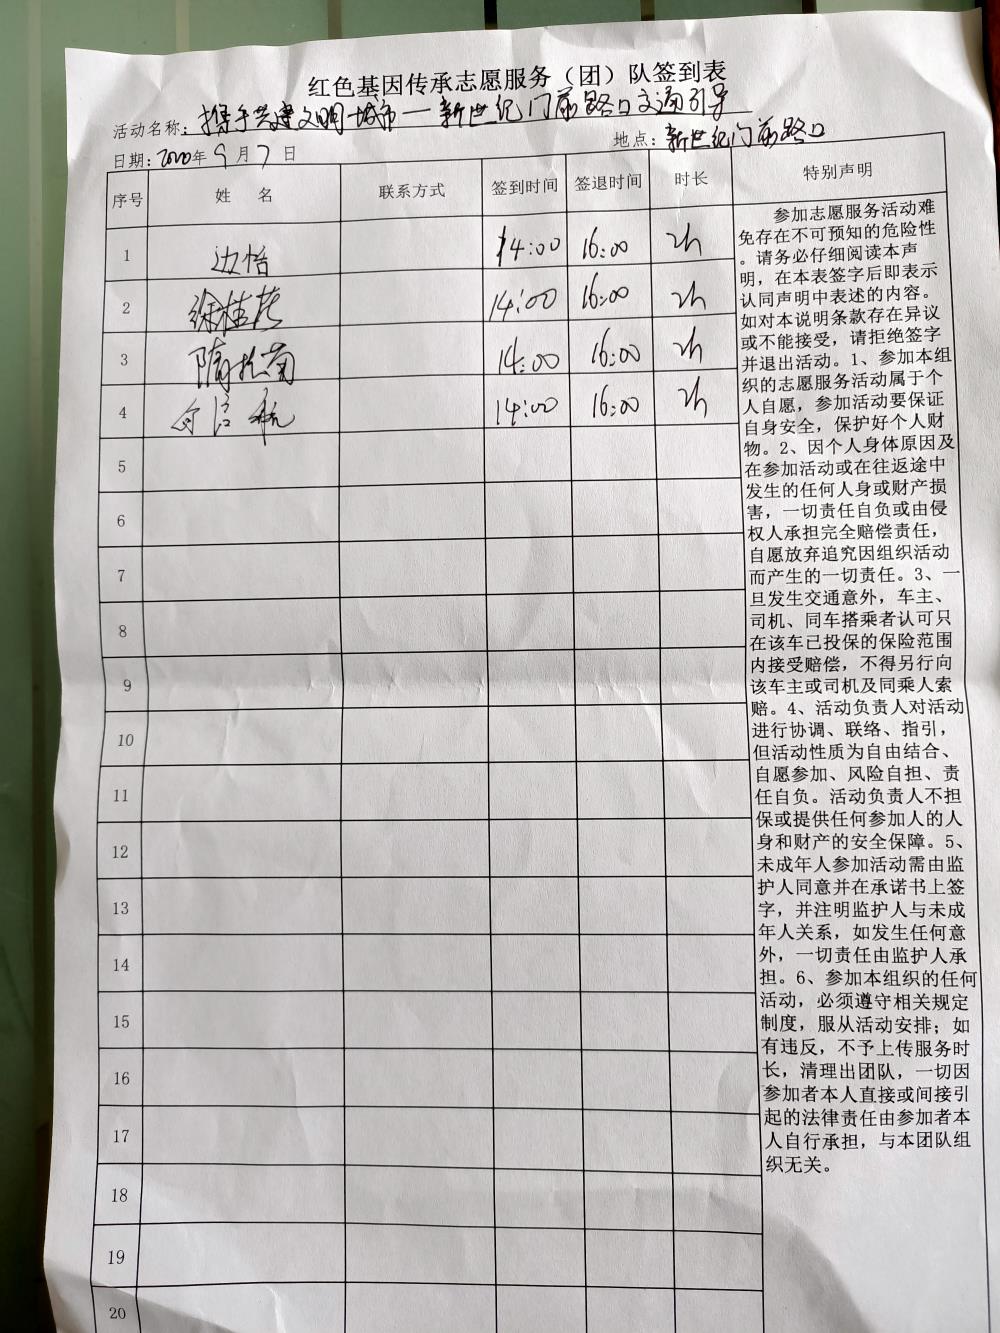 红色基因传承志愿服务（团）队签到表
活动名称：携手共建文明城市—新世纪门前路口交通引导
地点：新世纪门前路口
日期：2020年9月7日
序号 姓 名 联系方式 签到时间 签退时间 时长 特别声明
1 边恺 14:00 16:00 2h
2 徐桂花 14:00 16:00 2h
3 隋 14:00 16:00 2h
4 14:00 16:00 2h
5
6
7
8
9
10
11
12
13
14
15
16
17
18
19
20
参加志愿服务活动难
免存在不可预知的危险性
。请务必仔细阅读本声
明，在本表签字后即表示
认同声明中表述的内容。
如对本说明条款存在异议
或不能接受，请拒绝签字
并退出活动。1、参加本组
织的志愿服务活动属于个
人自愿，参加活动要保证
自身安全，保护好个人财
物。2、因个人身体原因及
在参加活动或在往返途中
发生的任何人身或财产损
害，一切责任自负或由侵
权人承担完全赔偿责任，
自愿放弃追究因组织活动
而产生的一切责任。3、一
旦发生交通意外，车主、
司机、同车搭乘者认可只
在该车已投保的保险范围
内接受赔偿，不得另行向
该车主或司机及同乘人索
赔。4、活动负责人对活动
进行协调、联络、指引，
但活动性质为自由结合、
自愿参加、风险自担、责
任自负。活动负责人不担
保或提供任何参加人的人
身和财产的安全保障。5、
未成年人参加活动需由监
护人同意并在承诺书上签
字，并注明监护人与未成
年人关系，如发生任何意
外，一切责任由监护人承
担。6、参加本组织的任何
活动，必须遵守相关规定
制度，服从活动安排；如
有违反，不予上传服务时
长，清理出团队，一切因
参加者本人直接或间接引
起的法律责任由参加者本
人自行承担，与本团队组
织无关。